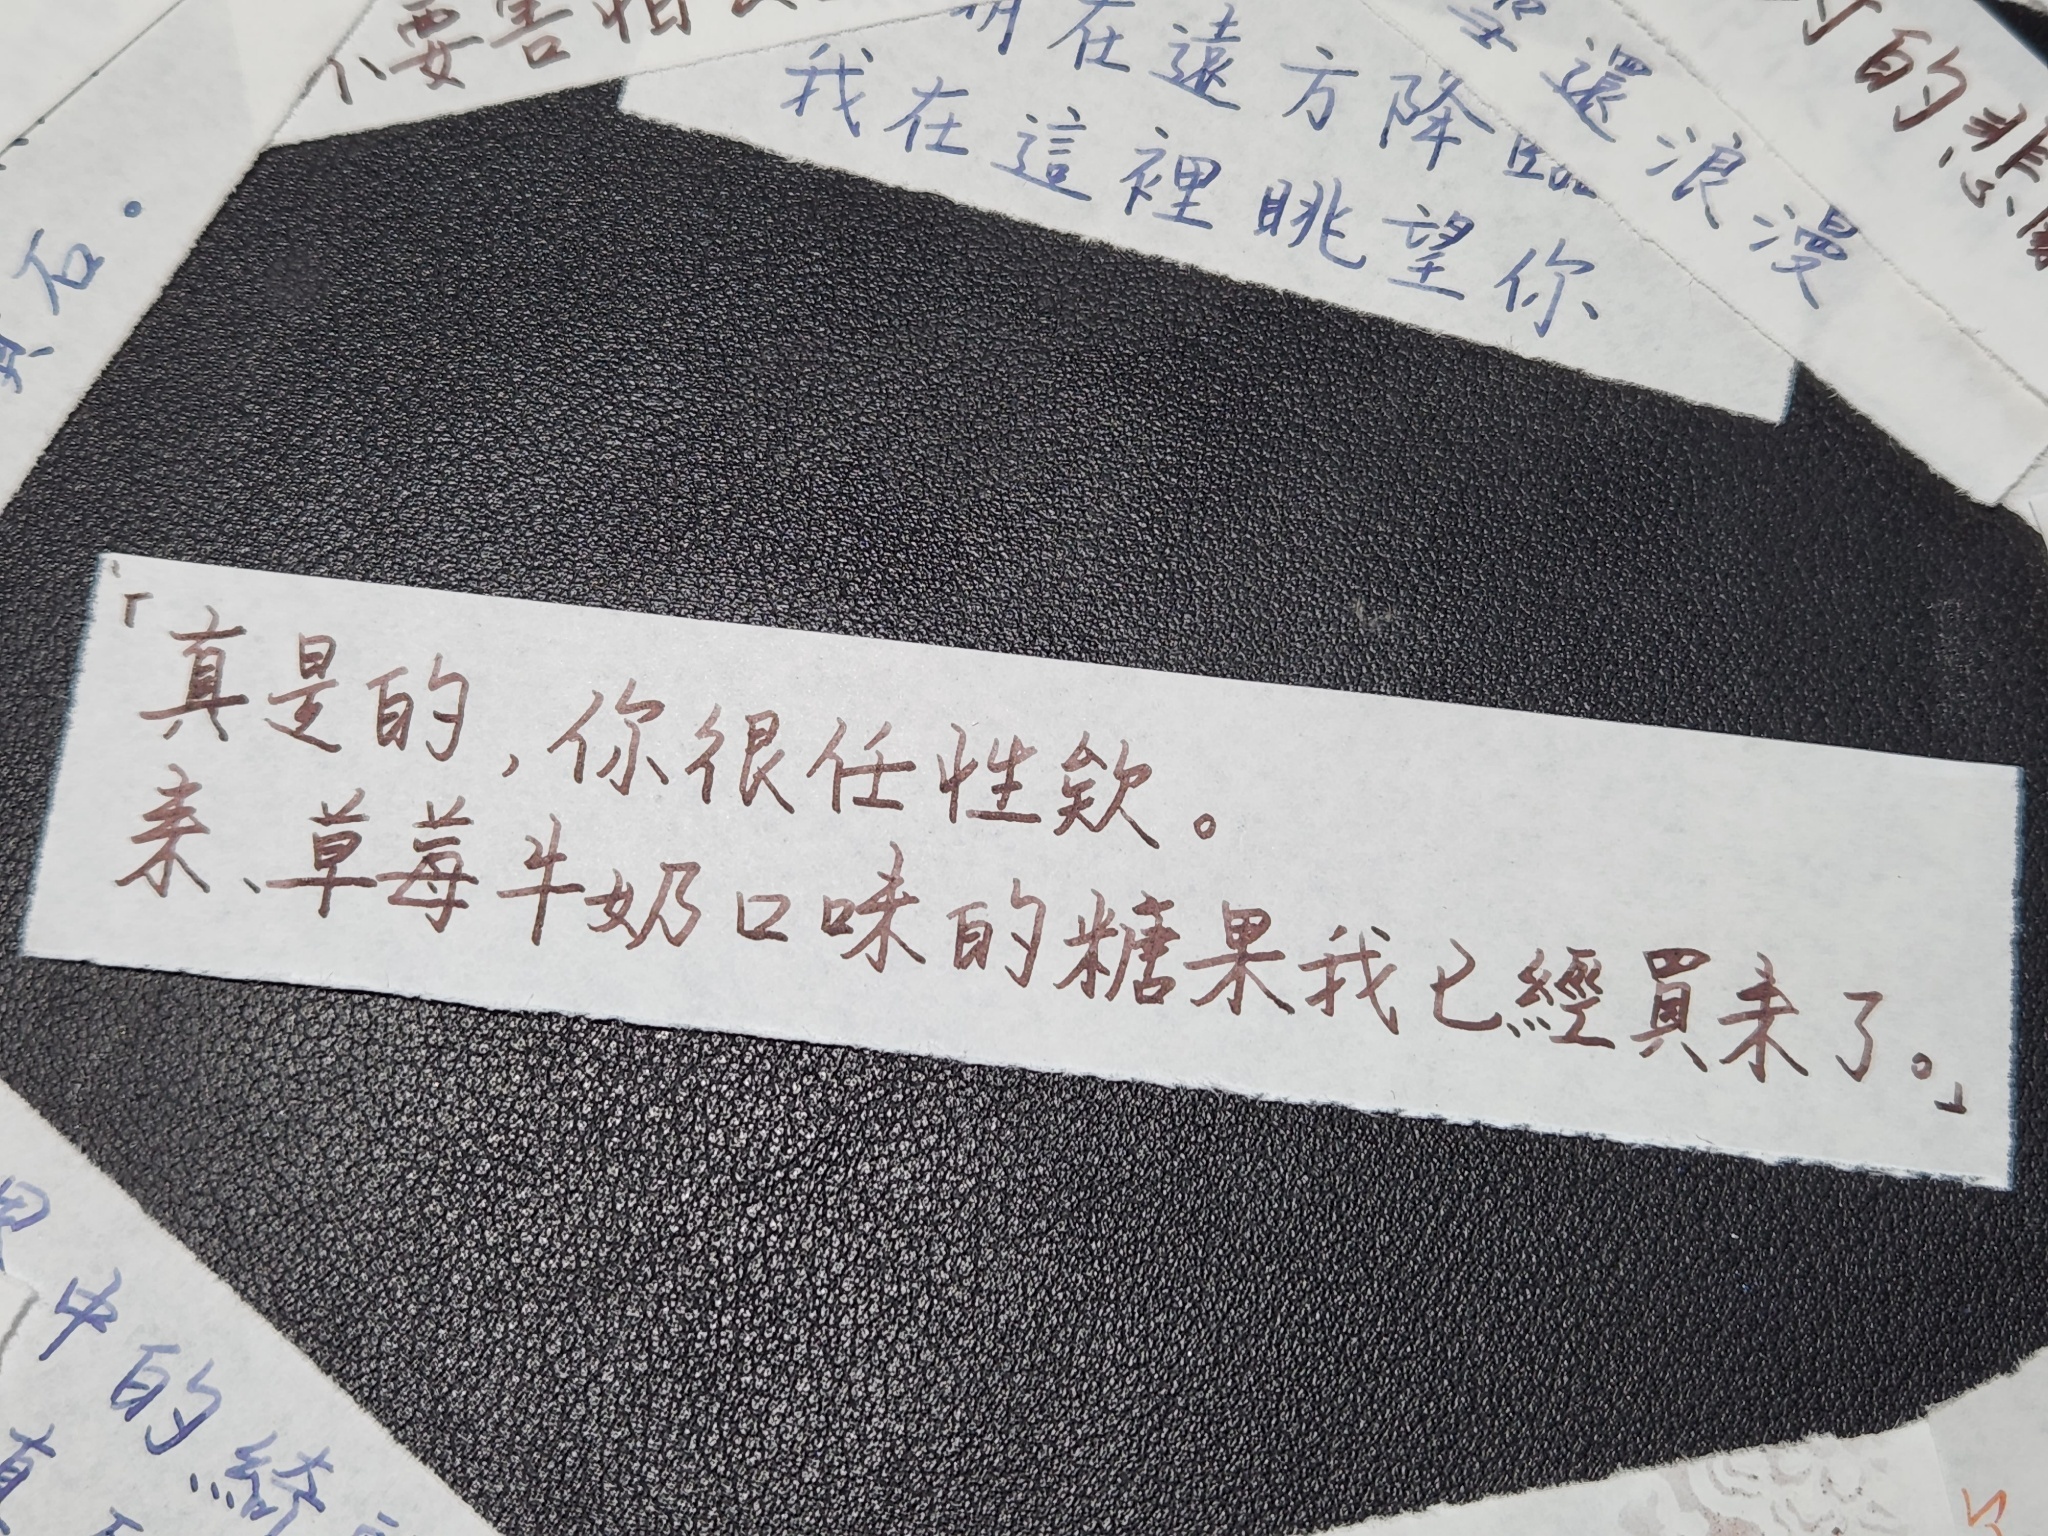 不要害怕
在遠方降臨
我在這裡眺望你
還浪漫
的悲傷
石。
「真是的,你很任性欸。
来、草莓牛奶口味的糖果我已經買来了。」
中的綺